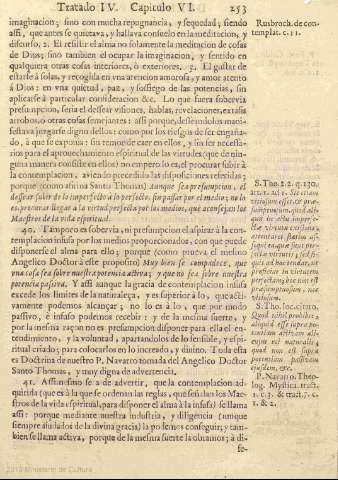 Tratado IV. Capitulo VI. 253
imaginacion; sino con mucha repugnancia, y sequedad; siendo
assi, que antes se quietava, y hallava consuelo en la meditacion, y
discurso, 2. El resistir el alma no solamente la meditacion de cosas
de Dios; sino tambien el ocupar la imaginacion, y sentido en
qualquiera otras cosas interiores, ò exteriores. 3. El gustar de
estarse à solas, y recogida en vna atencion amorosa, y amor atento
à Dios: en vna quietud, paz, y sossiego de las potencias, sin
aplicarse à particular consideracion &c. Lo que fuera sobervia
presumpcion, seria el desear visiones, hablas, revelaciones, extasis
arrobos, ò otras cosas semejantes: assi porque, deseandolos mani-
festava juzgarse digno dellos: como por los riesgos de ser engaña-
do, à que se exponia: sin temor de caer en ellos, y sin ser necessa-
rios para el aprovechamiento espiritual de las virtudes (que de nin-
guna manera consiste en ellos) mo empero lo es, el procurar subir à
la contemplacion, aviendo precedido las disposiciones referidas;
porque (como afirma Santo Thomas) Aunque sea presumpcion, el
desear subir de lo imperfecto à lo perfecto, sin passar por el medio; no lo
es procurar llegar à la virtud perfecta por los medios, que aconsejan los
Maestros de la vida espiritual.
40. Tampoco es sobervia, ni presumpcion el aspirar à la con-
templacion infusa por los medios proporcionados, con que puede
disponerse el alma para ello; porque (como prueva el mesmo
Angelico Doctor à este proposito) Muy bien se compadece, que
vna cosa sea sobre nuestra potencia activa; y que no sea sobre nuestra
potencia passiva. Y assi aunque la gracia de contemplacion infusa
excede los limites de la naturaleza, y es superior à lo, que acti-
vamente podemos alcançar; no lo es à lo, que por modo
passivo, è infuso podemos recebir: y de la mesma suerte, y
por la mesma razon no es presumpcion disponer para ella el en-
tendimiento, y la voluntad, apartandolos de lo sensible, y espi-
ritual criado; para colocarlos en lo increado, y divino. Toda esta
es Doctrina de nuestro P. Navarro tomada del Angelico Doctor
Santo Thomas, y muy digna de advertencia.
41. Assimesmo se a de advertir, que la contemplacion ad-
quirida (que es à la que se ordenan las reglas, que señalan los Maes-
tros de la vida espiritual, para disponer el alma à la infusa) se llama
assi: porque mediante nuestra industria, y diligencia (aunque
siempre ayudados de la divina gracia) la podemos conseguir; y tam-
bien se llama activa, porque de la mesma suerte la obramos; à di-
fe-
Rusbroch. de con-
templat. c. 11.
S. Tho. 2. 2. q. 130.
S. Tho. loc. citato.
Quod nihil prohibet,
P. Navarro. Theo-
log. Mystica. tract.
1. c. 3. & tract. 7. c.
1. & 2.
2010 Ministerio de Cultura